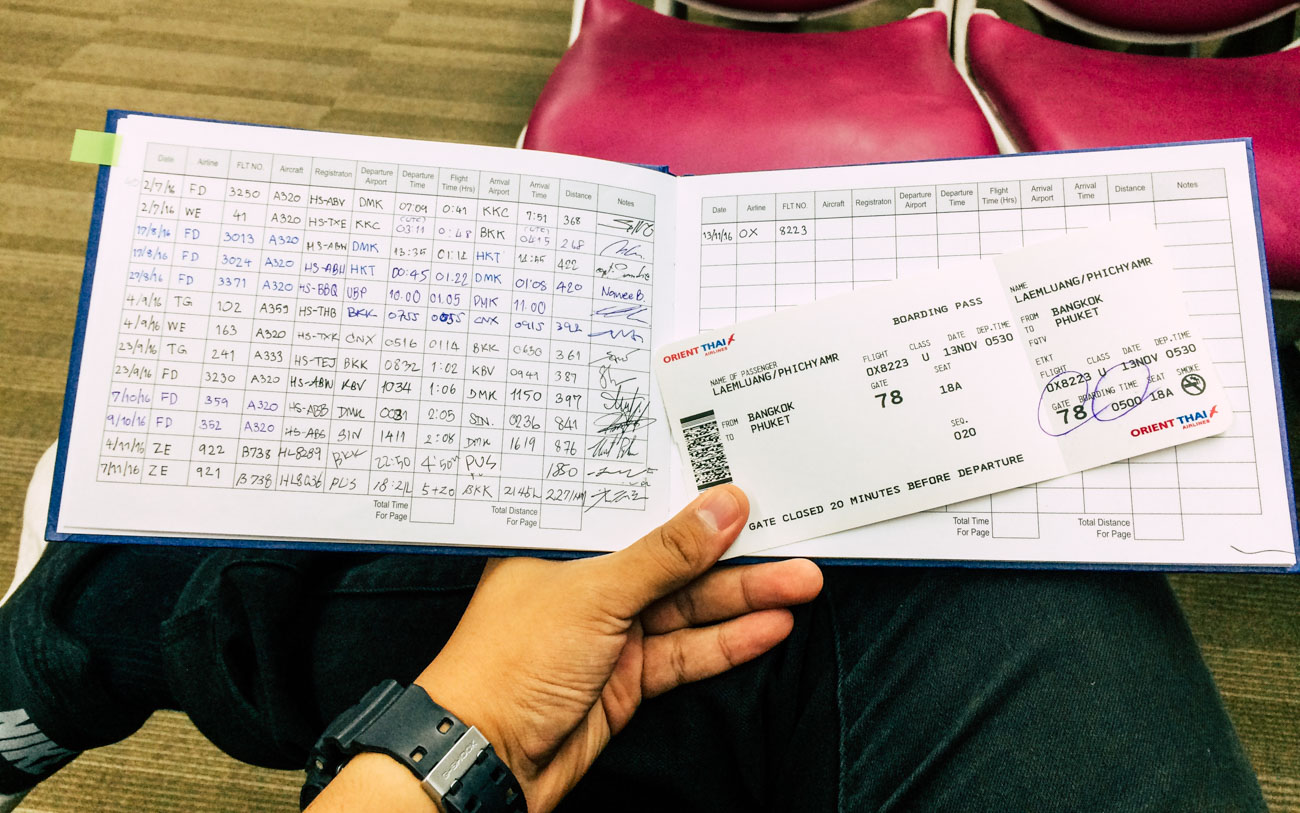 Date Airline FLT NO. Aircraft Registraton Departure Airport Departure Time Flight Time (Hrs) Arrival Airport Arrival Time Distance Notes
2/7/16 FD 3250 A320 HS-ABV DMK 07:09 0:41 KKC 7:51 368
2/7/16 WE 41 A320 HS-TXE KKC 03:11 0:48 BKK 0415 248
17/8/16 FD 3013 A320 HS-ABW DMK 13:35 01:12 HKT 422
17/8/16 FD 3024 A320 HS-ABW HKT 00:45 01.22 DMK 01'08 420
27/8/16 FD 3371 A320 HS-BBQ UBP 10.00 01.05 DMK 11.00 Namee B.
4/9/16 TG 102 A359 HS-THB BKK 0755 0055 CNX 0915 392
4/9/16 WE 163 A320 HS-TXK CNX 0516 0114 BKK 0630 361
23/9/16 TG 241 A333 HS-TEJ BKK 0832 1:02 KBV 0941 387
23/9/16 FD 3230 A320 HS-ABW KBV 1034 1:06 DMK 1150 397
7/10/16 FD 359 A320 HS-ABB DMK 0031 2:05 SIN. 0236 841
9/10/16 FD 352 A320 HS-ABG SIN 1411 2:08 DMK 1619 876
4/11/16 ZE 922 B738 HL8289 BKK 22:50 PUS 1850
7/11/16 ZE 921 B738 HL8036 PUS 18:21 5+20 BKK 2145
Total Time For Page
Total Distance For Page
Date Airline FLT NO. Aircraft Registraton Departure Airport Departure Time Flight Time (Hrs) Arrival Airport Arrival Time Distance Notes
13/11/16 OX 8223
Total Time For Page
Total Distance For Page
ORIENT THAI AIRLINES
BOARDING PASS
NAME OF PASSENGER
LAEMLUANG/PHICHYAMR
FLIGHT CLASS DATE DEP.TIME
OX8223 U 13NOV 0530
FROM BANGKOK
TO PHUKET
GATE SEAT
78 18A
SEQ.
020
GATE CLOSED 20 MINUTES BEFORE DEPARTURE
NAME
LAEMLUANG/PHICHYAMR
FROM BANGKOK
TO PHUKET
FQTV
ETKT
FLIGHT CLASS DATE DEP.TIME
OX8223 U 13NOV 0530
GATE BOARDING TIME SEAT SMOKE
78 0500 18A
ORIENT THAI AIRLINES
G-SHOCK